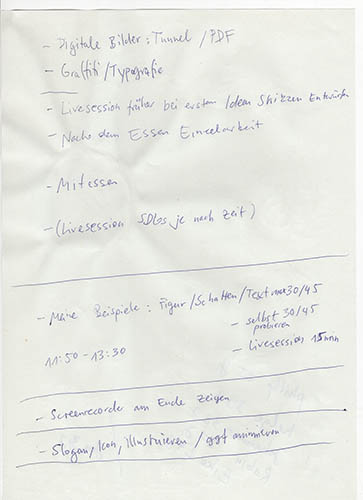 - Digitale Bilder: Tunnel / PDF
- Graffiti / Typografie
- Livesession früher bei ersten Ideen Skizzen Entwürfen
- Nach dem Essen Einzelarbeit
- Mitessen
- (Livesession SDGs je nach Zeit)
- Meine Beispiele: Figur / Schatten / Text max 30/45
- selbst 30/45
probieren
11:50 - 13:30
- Livesession 15 min
- Screenrecorder am Ende zeigen
- Slogan, Icon, illustrieren / ggf animieren